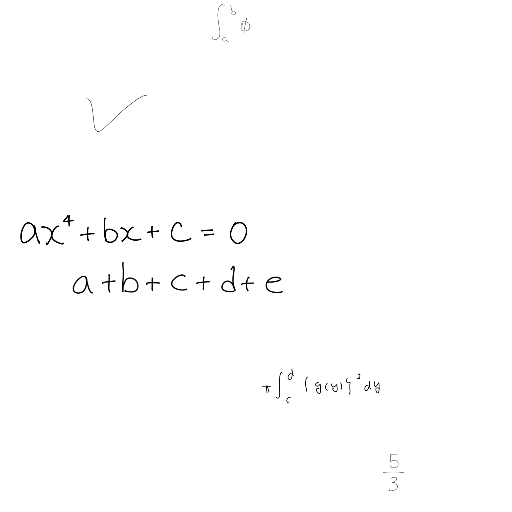 ∫_a^b φ
√
ax⁴+bx+c=0
a+b+c+d+e
π∫_c^d {g(y)}² dy
5/3